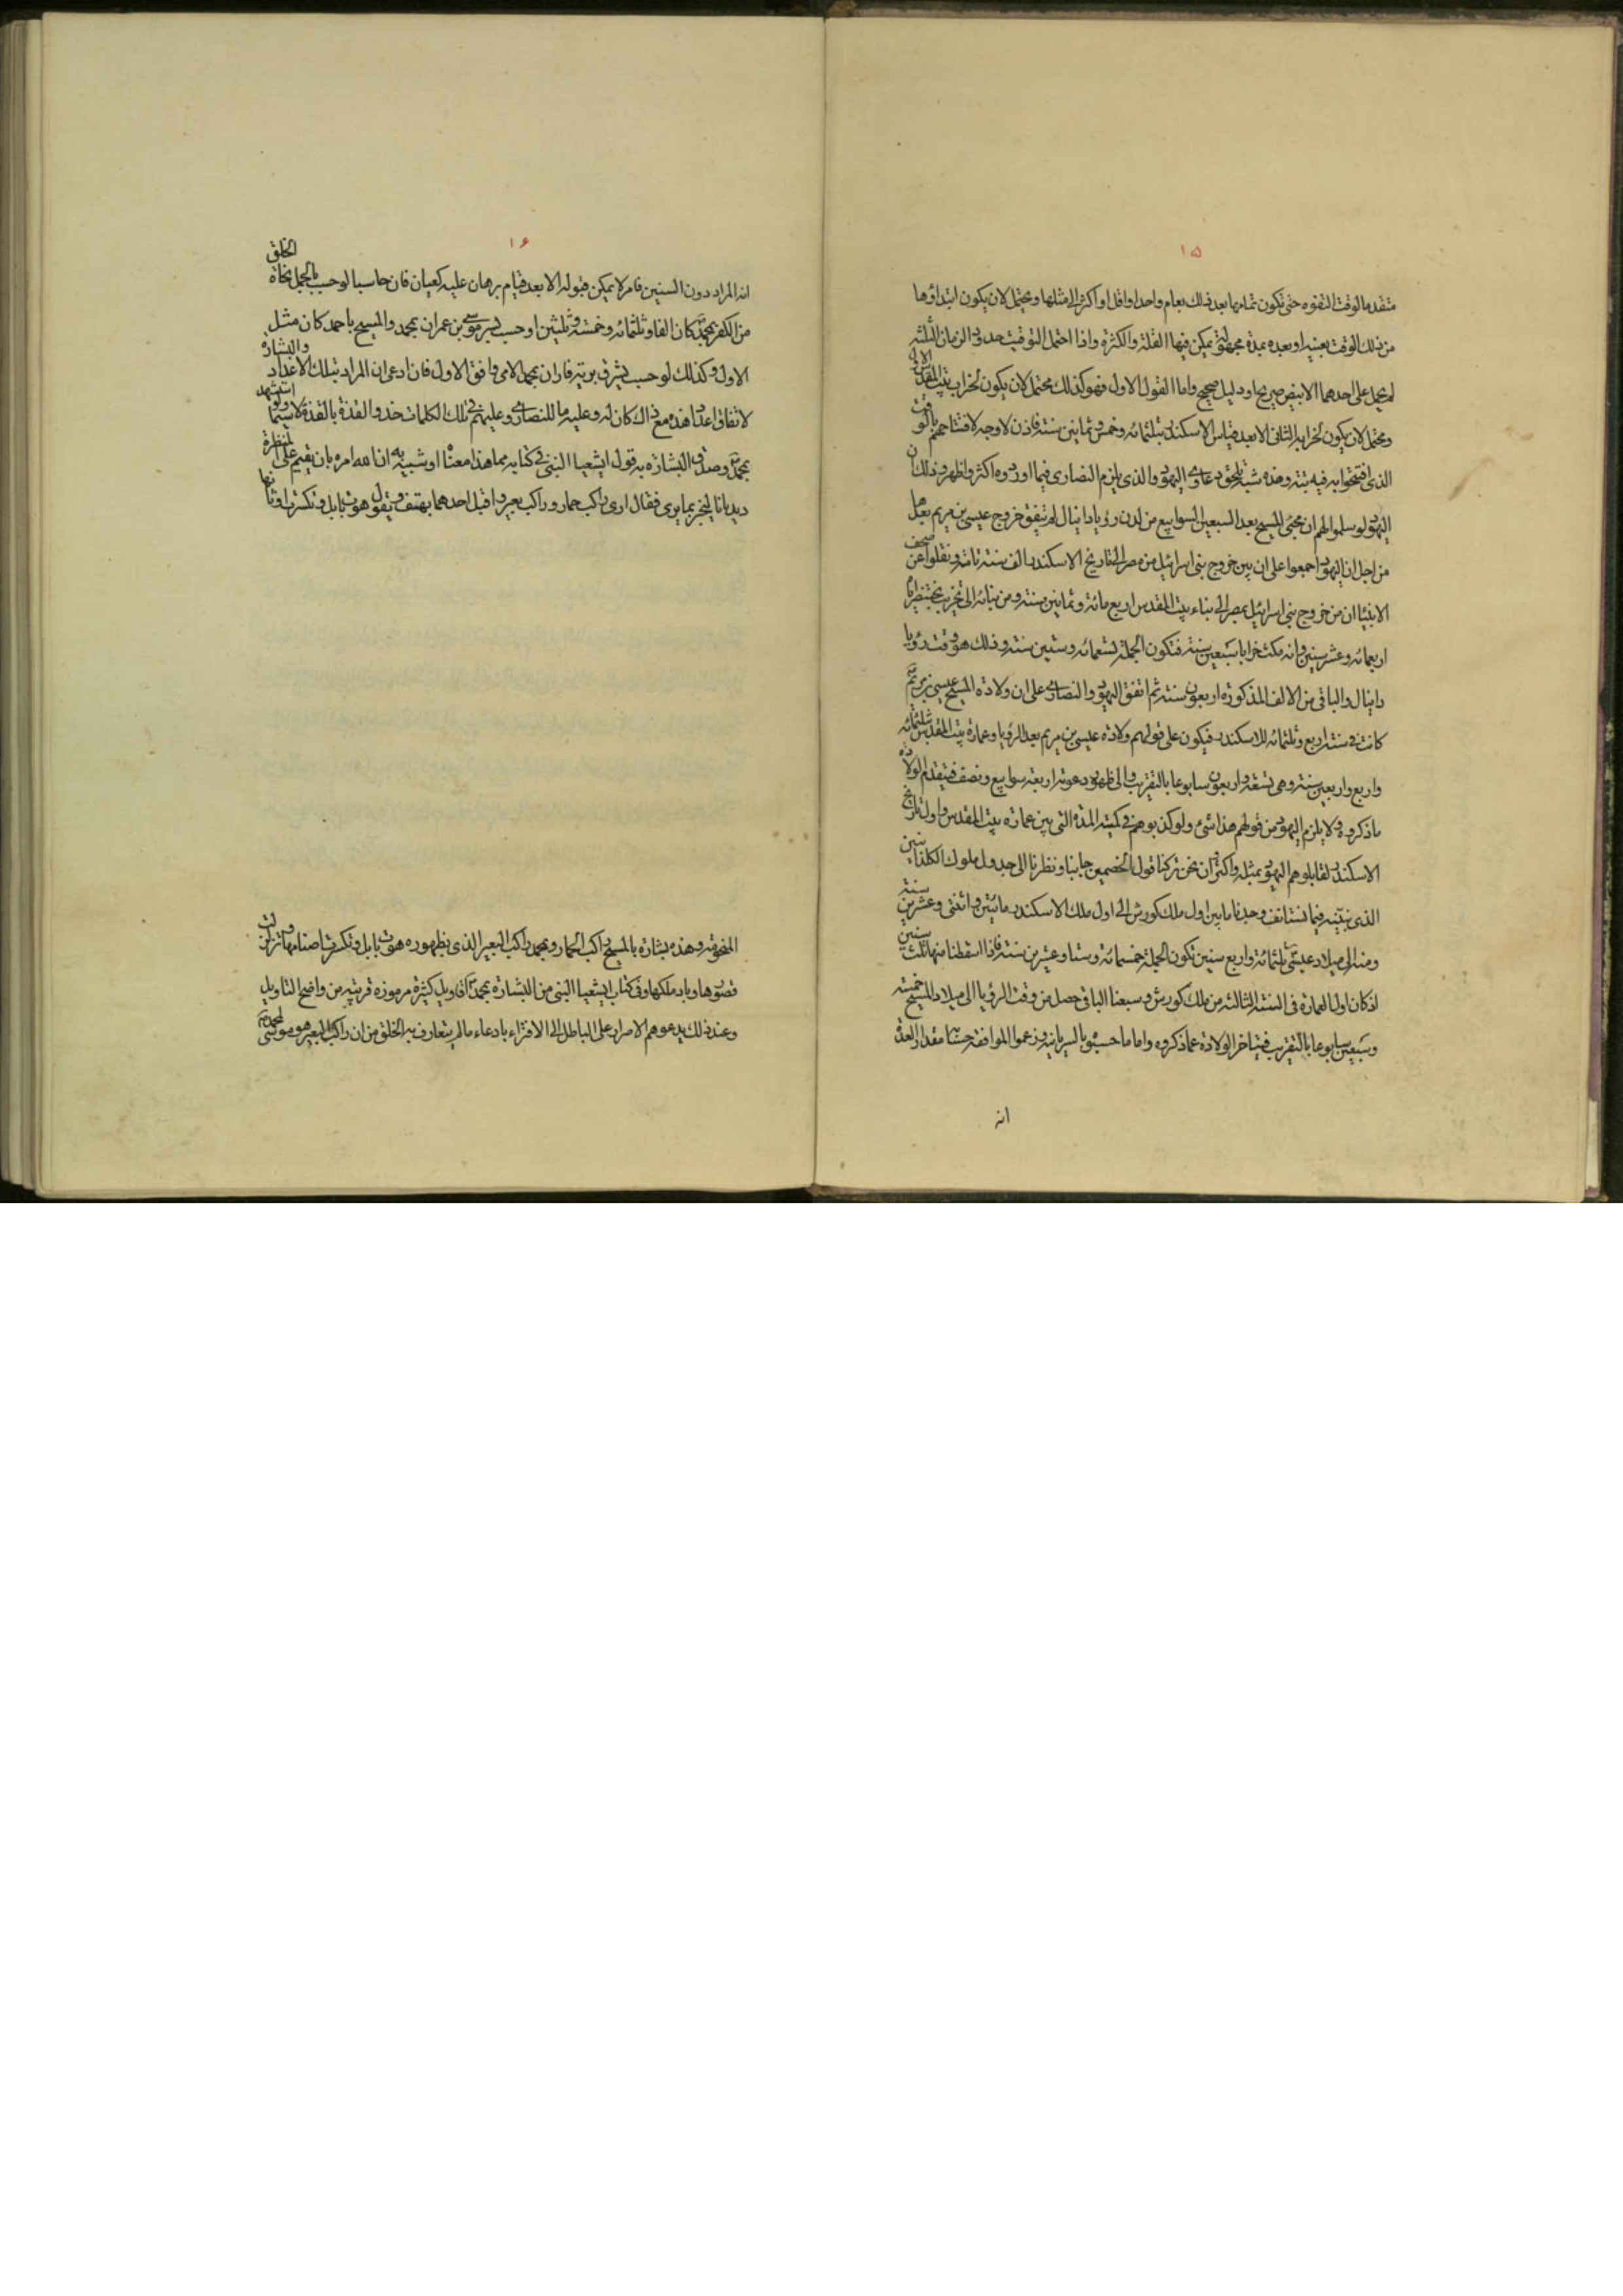 ١٥
متقدما لوقت التفوه حتى تكون تمامها بعد ذلك بعام واحد او اقل او اكثر الى مثلها ويحتمل لان يكون ابتداؤها
من ذلك الوقت بعينه او بعده بمدة مجهولة يمكن فيها القلة والكثرة واذا احتمل التوقيت حدود الزمان الثلثه
لم يحمل على احدهما الا بنص صريح او دليل صحيح واما القول الاول فهو كذلك محتمل لان يكون لخراب بيت المقدس الاول
ويحتمل لان يكون لخرابه الثانى الا بعد قياس الاسكندر بثلثمائه وخمس وثمانين سنة فاذن لا وجه لافتتاحهم بالوقت
الذى افتتحوا به فيه بتة وهذه شبه تلحق دعاوى اليهود والذى يلزم النصارى فيما اوردوه اكثر واظهر وذلك ان
اليهود لو سلموا لهم ان مجئ المسيح بعد السبعين السوابيع من لدن رؤيا دانيال لم يتفق خروج عيسى بن مريم بعدها
من اجل ان اليهود اجمعوا على ان بين خروج بنى اسرائيل من مصر الى تاريخ الاسكندر الف سنة تامة ونقلوا عن صحف
الانبيا ان من خروج بنى اسرائيل بمصر الى بناء بيت المقدس اربع مائة وثمانين سنة ومن بنائه الى تخريب بختنصر اياه
اربعمائه وعشر سنين وانه مكث خرابا سبعين سنة فتكون الجملة تسعمائه وستين سنة وذلك هو وقت رؤيا
دانيال والباقى من الالف المذكورة اربعون سنة ثم اتفق اليهود والنصارى على ان ولادة المسيح عيسى بن مريم
كانت فى سنة اربع وثلثمائه للاسكندر فيكون على قولهم ولادة عيسى بن مريم بعد الرؤيا وعمارة بيت المقدس بثلثمائه
واربع واربعين سنة وهى تسعة واربعون سابوعا بالتقريب والى ظهور دعوته اربعة سوابيع ونصف فيتقدم الولادة
ما ذكروه ولا يلزم اليهود من قولهم هذا شئ ولو كذبوهم فى كمية المدة التى بين عمارة بيت المقدس واول تاريخ
الاسكندر لقابلوهم اليهود بمثله واكثر ان نحن تركنا قول الخصمين جانبا ونظرنا الى جدول ملوك الكلدانيين
الذى نبينه فيما نستانف وجدنا ما بين اول ملك كورش الى اول ملك الاسكندر مائتين واثنتى وعشرين سنة
ومنه الى ميلاد عيسى ثلثمائة واربع سنين تكون الجملة خمسمائة وستا وعشرين سنة فاذا اسقطنا منها ثلث سنين
اذ كان اول العمارة فى السنة الثالثه من ملك كورش وسبعنا الباقى حصل من وقت الرؤيا الى ميلاد المسيح خمسة
وسبعين سابوعا بالتقريب فيتاخر الولادة عما ذكروه واما ما حسبوه بالسريانية وزعموا الموافقة حسبنا مقدار العدة
انه
١٦
انه المراد دون السنين فامر لا يمكن قبوله الا بعد قيام برهان عليه كعيان فان حاسبا لو حسب بالجمل نجاة الخلق
من الكفر بمحمد كان الفا وثلثمائه وخمسة وثلثين او حسب بشر موسى بن عمران بمحمد والمسيح باحمد كان مثل
الاول وكذلك لو حسب يشرق برية فاران بمحمد الامى وافق الاول فان ادعى ان المراد بتلك الاعداد والبشاره
لاتفاق اعداد هذه مع ذاك كان له وعليه ما للنصارى وعليهم فى تلك الكلمات حذو القذة بالقذة لا سيما ولو استشهد
بمحمد وصدق البشارة به قول ايشعيا النبى فى كتابه بما هذا معناه او شبيه به ان الله امره بان يقيم على المنظرة
ديدبانا ليخبر بما يرى فقال ارى راكب حمار وراكب بعير واقبل احدهما يهتف ويقول هوت بابل وتكسرت اوثانها
المنحوته وهذه بشارة بالمسيح راكب الحمار وبمحمد راكب البعير الذى بظهوره هوت بابل وتكسرت اصنامها وتزلزلت
قصورها وباد ملكها وفى كتاب ايشعيا النبى من البشارة بمحمد اقاويل كثيرة مرموزة قريبه من واضح التاويل
وعند ذلك يدعوهم الاصرار على الباطل الى الافتراء بادعاء ما لم يتعارف به الخلق من ان راكب البعير هو موسى لا محمد